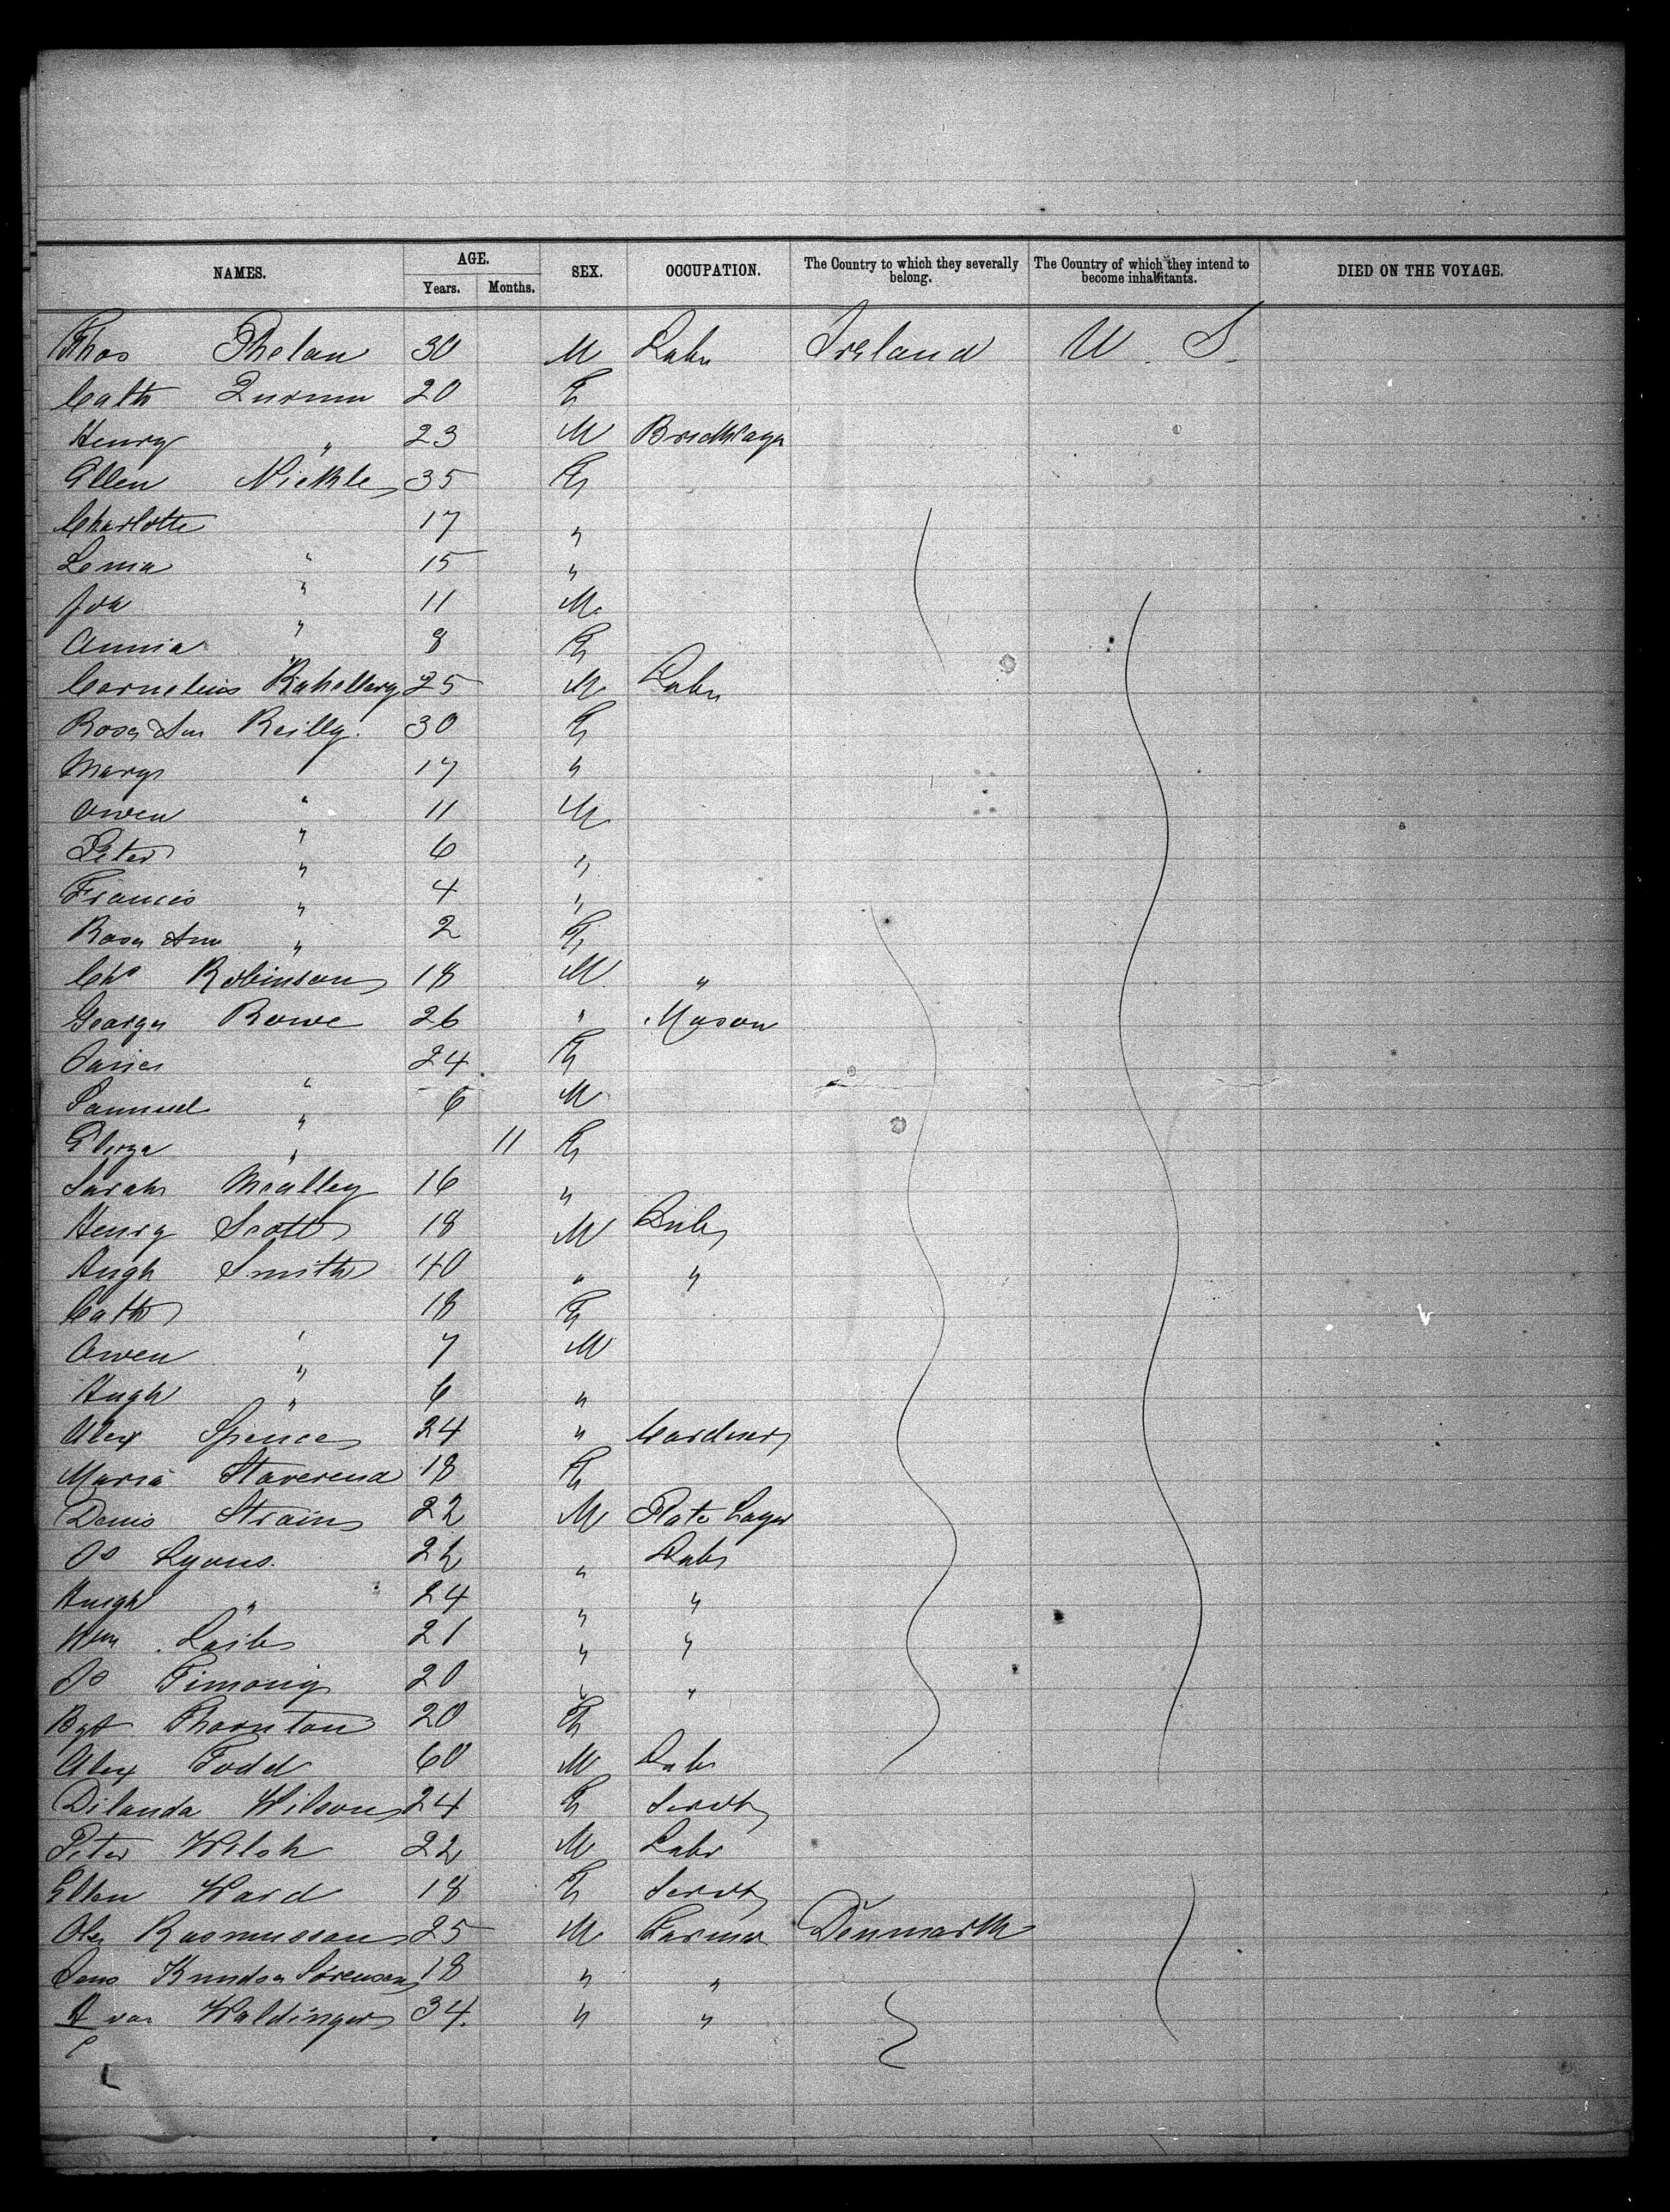 NAMES. AGE. SEX. OCCUPATION. The Country to which they severally belong. The Country of which they intend to become inhabitants. DIED ON THE VOYAGE.
Years. Months.
Thos Phelan 30 M Labr Ireland U. S.
Cath 20 F
Henry " 23 M Bricklayer
Ellen Nickle 35 F
Charlotte " 17 "
Lema " 15 "
Joh " 11 M
Annia " 8 F
Cornelius 25 M Labr
Rose Ann Reilly. 30 F
Mary " 17 "
Owen " 11 M
Peter " 6 "
Francis " 4 "
Rose Ann " 2 F
Chs Robinson 18 M "
George Rowe 26 " Mason
Janie " 24 F
Samuel " 6 M
Eliza " 11 F
Sarah McAlley 16 "
Henry Scott 18 M Labr
Hugh Smith 40 " "
Cath " 18 F
Owen " 7 M
Hugh " 6 "
Alex Spence 24 " Gardner
Maria 18 F
Denis Strain 22 M Plate Layer
Jo Lyons. 22 " Labr
Hugh " 24 " "
Wm 21 " "
Jo Timony 20 " "
Bgt Thornton 20 F
Alex Todd 60 M Labr
Dilanda Wilson 24 F Servt
Peter Welsh 22 M Labr
Ellen Ward 18 F Servt
Ole Rasmussen 25 M Farmer Denmark
Jens Knudsen Sorensen 18 " "
A van Waldinger 34. " "